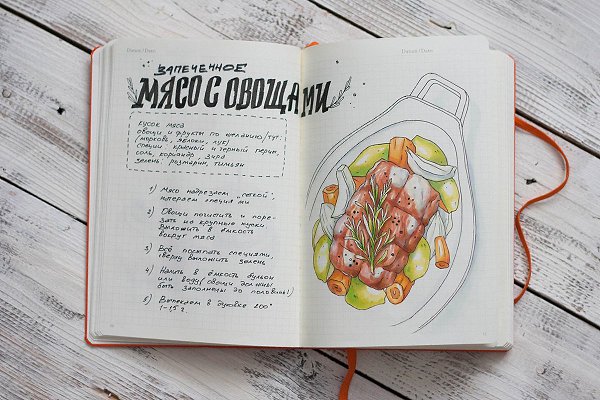 Datum / Date:
Datum / Date:
ЗАПЕЧЕННОЕ
МЯСО С ОВОЩАМИ
КУСОК МЯСА
ОВОЩИ И ФРУКТЫ ПО ЖЕЛАНИЮ / ТУТ:
(МОРКОВЬ, ЯБЛОКИ, ЛУК)
СПЕЦИИ: КРАСНЫЙ И ЧЕРНЫЙ ПЕРЦЫ,
СОЛЬ, КОРИАНДР, ЗИРА
ЗЕЛЕНЬ: РОЗМАРИН, ТИМЬЯН
1) МЯСО НАДРЕЗАЕМ "СЕТКОЙ",
НАТИРАЕМ СПЕЦИЯМИ
2) ОВОЩИ ПОЧИСТИТЬ И ПОРЕ-
ЗАТЬ НА КРУПНЫЕ КУСКИ
ВЫЛОЖИТЬ В ЁМКОСТЬ
ВОКРУГ МЯСА
3) ВСЁ ПОСЫПАТЬ СПЕЦИЯМИ,
СВЕРХУ ВЫЛОЖИТЬ ЗЕЛЕНЬ
4) НАЛИТЬ В ЁМКОСТЬ БУЛЬОН
ИЛИ ВОДУ (ОВОЩИ ДОЛЖНЫ
БЫТЬ ЗАПОЛНЕНЫ ДО ПОЛОВИНЫ!)
5) ВЫПЕКАЕМ В ДУХОВКЕ 200°
1-1,5 Г.